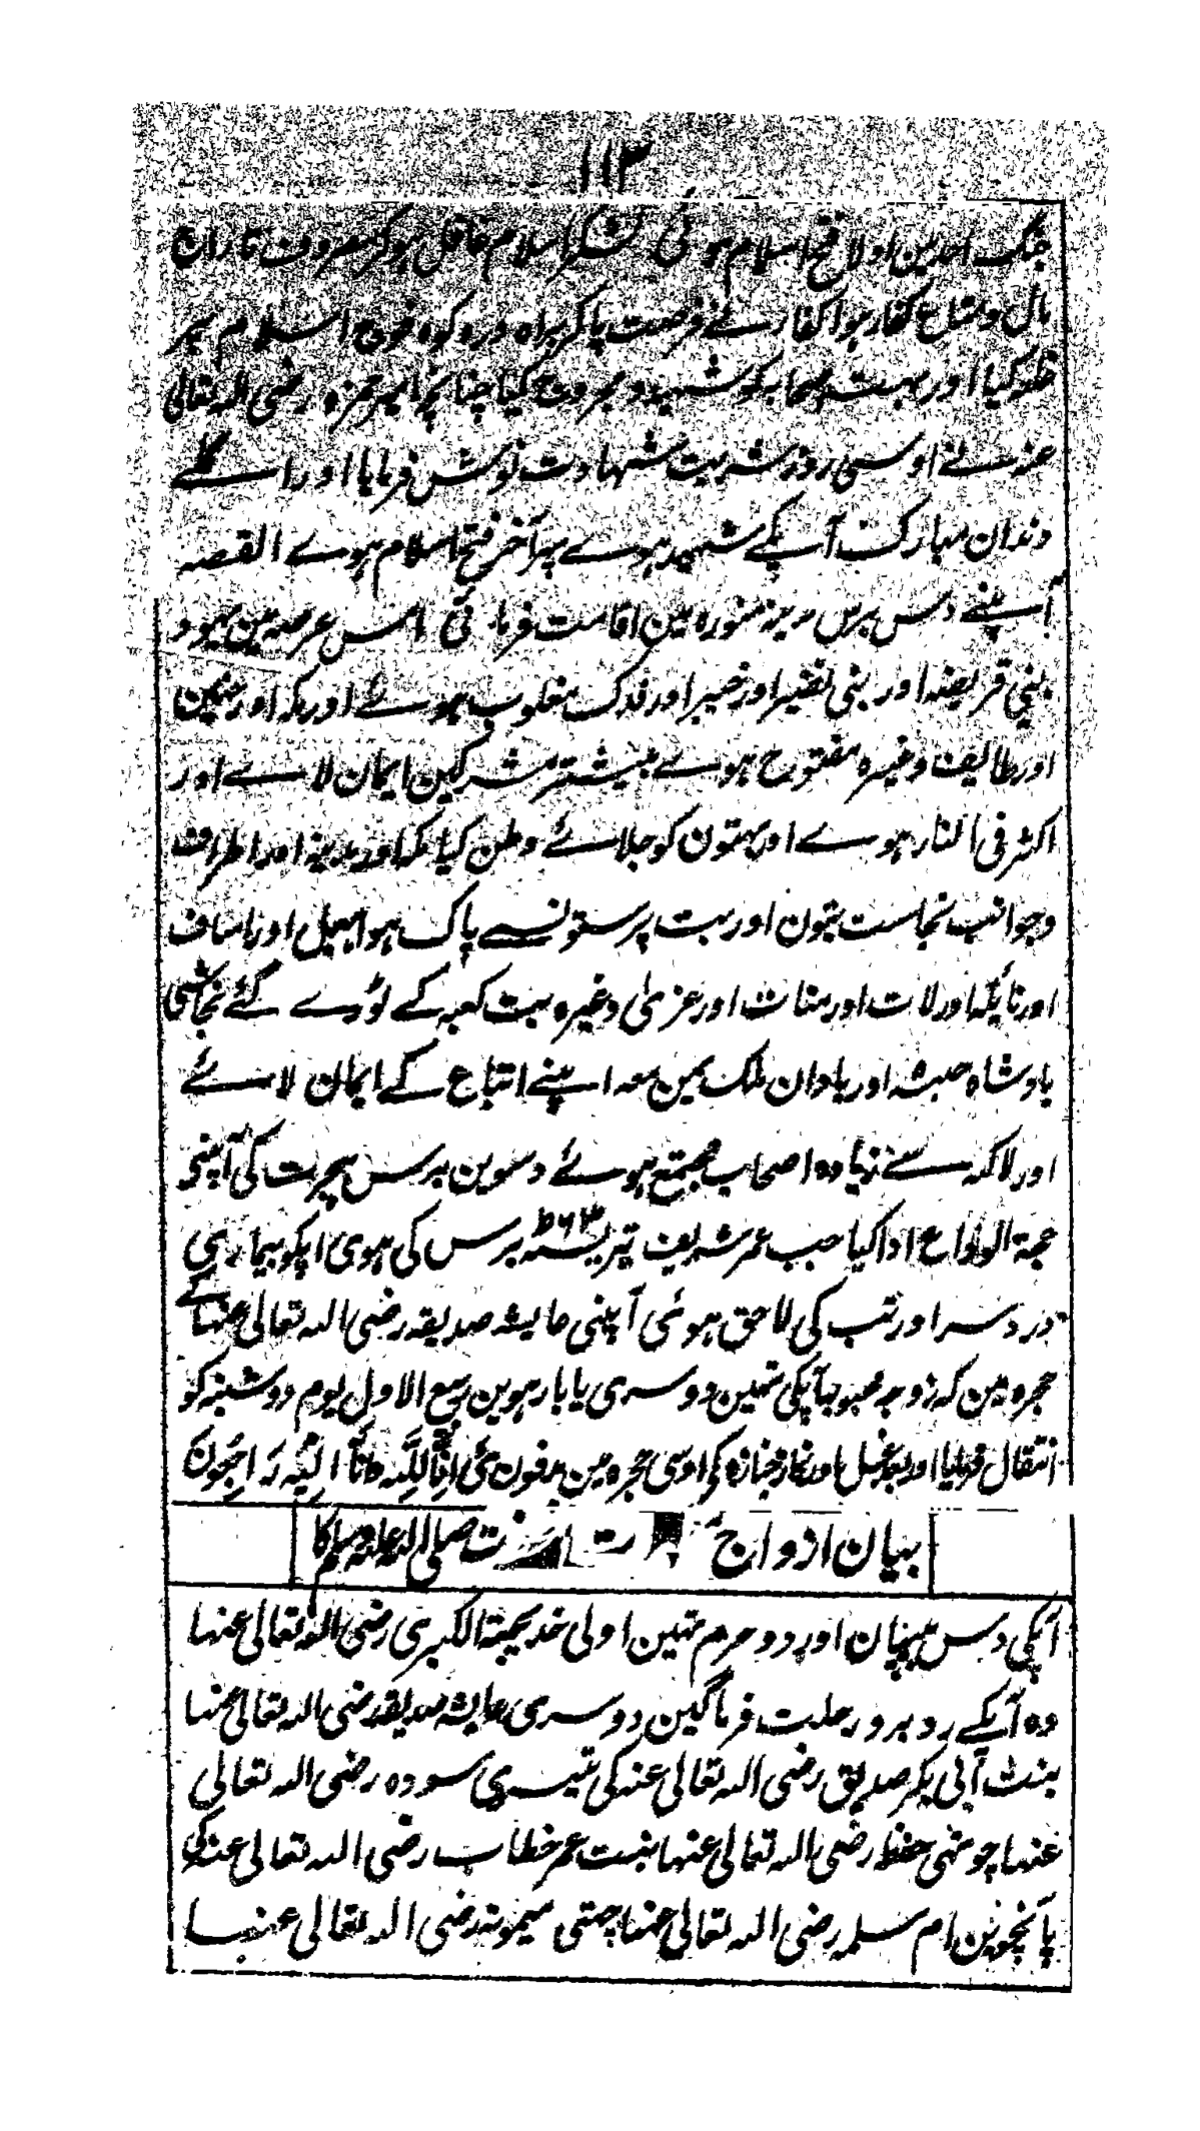 ۱۱۳
جنگ احد مین اولا فتح اسلام ہوئی لشکر اسلام غافل ہوکر مصروف تاراج
مال و متاع کفار ہوا کفار نے فرصت پاکر براہ درہ کوہ فوج اسلام پر
غلبہ کیا اور بہت صحابہ کو شہید و مجروح کیا چنانچہ امیر حمزہ رضی اللہ تعالی
عنہ نے اوسی روز شربت شہادت نوش فرمایا اور اگلے
دندان مبارک آپکے شہید ہوے پہر آخر فتح اسلام ہوے القصہ
آپنے دس برس مدینہ منورہ مین اقامت فرمائی اس عرصہ مین یہود
بنی قریضہ اور بنی نضیر اور خیبر اور فدک مغلوب ہوئے اور مکہ اور حنین
اور طایف وغیرہ مفتوح ہوے بیشتر مشرکین ایمان لاے اور
اکثر فی النار ہوے اور بہتون کو جلائے وطن کیا مکہ اور مدینہ اور اطراف
وجوانب نجاست بتون اور بت پرستونسے پاک ہوا ہبل اور اساف
اور نایلہ اور لات اور منات اور عزیٰ وغیرہ بت کعبہ کے توڑے گئے نجاشی
بادشاہ حبشہ اور باذان ملک یمن معہ اپنے اتباع کے ایمان لائے
اور لاکہ سے زیادہ اصحاب مجتمع ہوئے دسوین برس ہجرت کی آپنی
حجۃ الوداع ادا کیا جب عمر شریف تریسٹہ ۶۳ برس کی ہوی اپکو بیماری
درد سر اور تپ کی لاحق ہوئی آپنی عایشہ صدیقہ رضی اللہ تعالی عنہا کے
حجرہ مین کہ زوجہ محبوبہ آپکی تہین دوسری یا بارہوین ربیع الاول یوم دوشنبہ کو
انتقال فرمایا اور بعد غسل اور نماز جنازہ کی اوسی حجرہ مین مدفون ہوئی اِنَّا لِلّٰہِ وَاِنَّا اِلَیْہِ رَاجِعُونَ
بیان ازواج صلی اللہ علیہ وسلم کا
آپکی دس بیبیان اور دو حرم تہین اولی خدیجۃ الکبری رضی اللہ تعالی عنہا
وہ آپکے روبرو رحلت فرماگئین دوسری عایشہ صدیقہ رضی اللہ تعالی عنہا
بنت ابی بکر صدیق رضی اللہ تعالی عنہ کی تیسری سودہ رضی اللہ تعالی
عنہا چوتہی حفظہ رضی اللہ تعالی عنہا بنت عمر خطاب رضی اللہ تعالی عنہ کی
پانچوین ام سلمہ رضی اللہ تعالی عنہا چہٹی میمونہ رضی اللہ تعالی عنہا